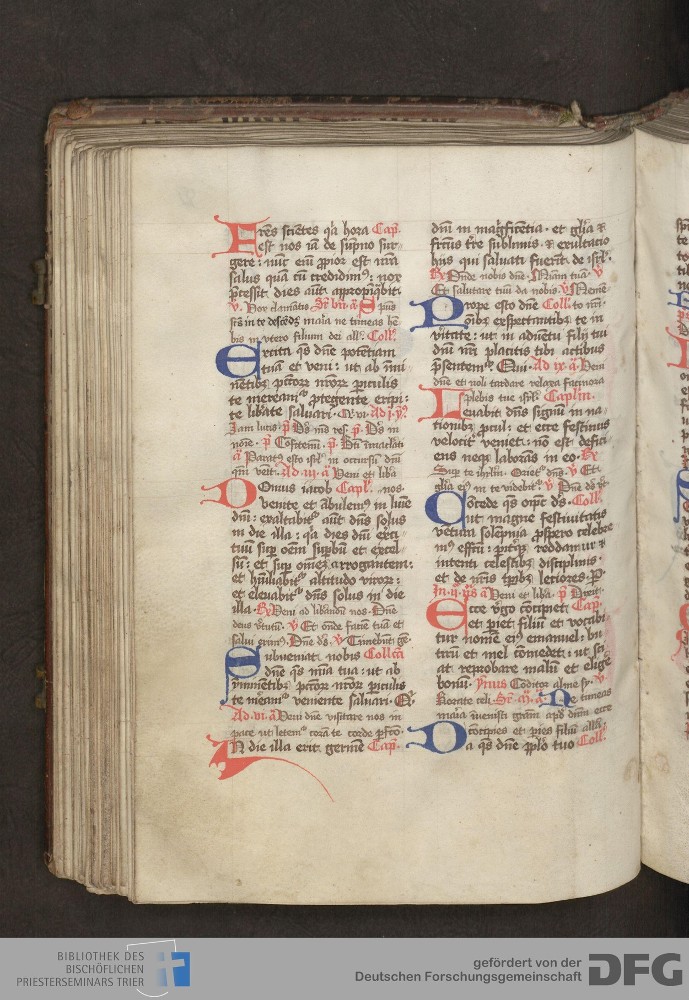 Fr̄es scientes q̇a hora Cap̄.
est nos iā de sōmpno sur-
gere: nūc em̄ ꝓpior est nr̄a
salus quā cū credidim⁹: nox
p̄cessit dies aūt appropīq̄bit.
ītū in te descēdꝫ maria ne timeas hē
bis in vtero filium dei all̄. Coll̄.
Excita q̄s dn̄e potētiam
tuā et veni: ut ab īmi-
nētibꝫ pctō℞ nr̄o℞ piculis
te meream᷑ ꝓtegente eripi:
te lib̄ate saluari. Ad j. p̄.
Iam lucis. p̄ Ds̄ in
noīe. p̄ Cōfitemī. p̄ Bt̄i īmaclati
a Parat⁹ esto isrl̄ in occursū dn̄i
qm̄ veīt. Ad iij. a Veni et libā
Domus iacob Capl̄. nos.
venite et ābulem⁹ in lūie
dn̄i: exaltabit᷑ aūt dn̄s solus
in die illa: q̇a dies dn̄i ex̄ci
tuū suꝑ oēm suꝑbū et excel
sū: et suꝑ om̄eꝫ arrogantem:
et hūiliabit᷑ altitudo viro℞:
et eleuabit᷑ dn̄s solus in die
illa. ℞ Veni ad libandū nos. Dn̄e
deus v̄tutū. ℣ Et ōnde faciē tuā et
salui erim⁹. Dn̄e ds̄. ℣ Timebūt gē.
Subueniat nobis Collcā
dn̄e q̄s mīa tua: ut ab
 īminētibꝫ pctō℞ nr̄o℞ piculis
te m̄eam᷑ veniente saluari. Q̇.
Ad vi. a Veni dn̄e visitare nos in
pace ut letem᷑ corā te corde p̄fc̄o.
In die illa erit germē Cap̄.
dn̄i in mag̅ficētia et gl̄ia ⁊
fr̄ctus tr̄e sublimis ⁊ exultacio
hijs qui saluati fuerīt de isrl̄.
℞ Ōnde nobis dn̄e. Mīam tuā. ℣
Et salutare tuū da nobis. ℣ Mem̄e.
Prope esto dn̄e Coll̄. to nr̄i.
om̄ibꝫ exspectantibꝫ te in
v̄itate: ut in aduētu filij tui
dn̄i nr̄i placitis tibi actibus
p̄sentem᷑. Qui. Ad ix. a Veni
dn̄e et noli tardare relaxa facinora
plebis tue isrl̄. Caplm̄.
Leuabit dn̄s signū in na-
tionibꝫ ꝓcul: et ecce festinus
velocit̄ veniet: nō est defici
ens neqꝫ laborās in eo. ℞
Suꝑ te ihrlm̄. Oriet᷑ dn̄s. ℣ Et
gl̄ia ei⁹ in te videbit᷑. ℣ Dn̄e ds̄ v̄t.
Cōcede q̄s om̄ps ds̄. Coll̄.
ut magne festiuitatis
vētura solempnia ꝓspero celebre
m⁹ effc̄u: pit̄qꝫ reddam᷑ ⁊
intenti celestibꝫ disciplinis
et de nr̄is tp̄ibꝫ leciores. P̄.
In ij. vp̄s a Veni et libā. p̄ Dixit.
Ecce v̄go cōcipiet Cap̄.
et piet filiū et vocabi
tur nomē ei⁹ emanuel: bu
tirū et mel cōmedet: ut sci
at reprobare malū et elige̅
bonū. Ymus Cōditor alme sy. ℣
Rorate celi. Ne timeas
maria īuenisti gr̄am apd̄ dn̄m ecce
cōcipies et pies filiū all̄a.
Da q̄s dn̄e ppl̄o tuo Coll̄.
BIBLIOTHEK DES
BISCHÖFLICHEN
PRIESTERSEMINARS TRIER
gefördert von der
Deutschen Forschungsgemeinschaft
DFG